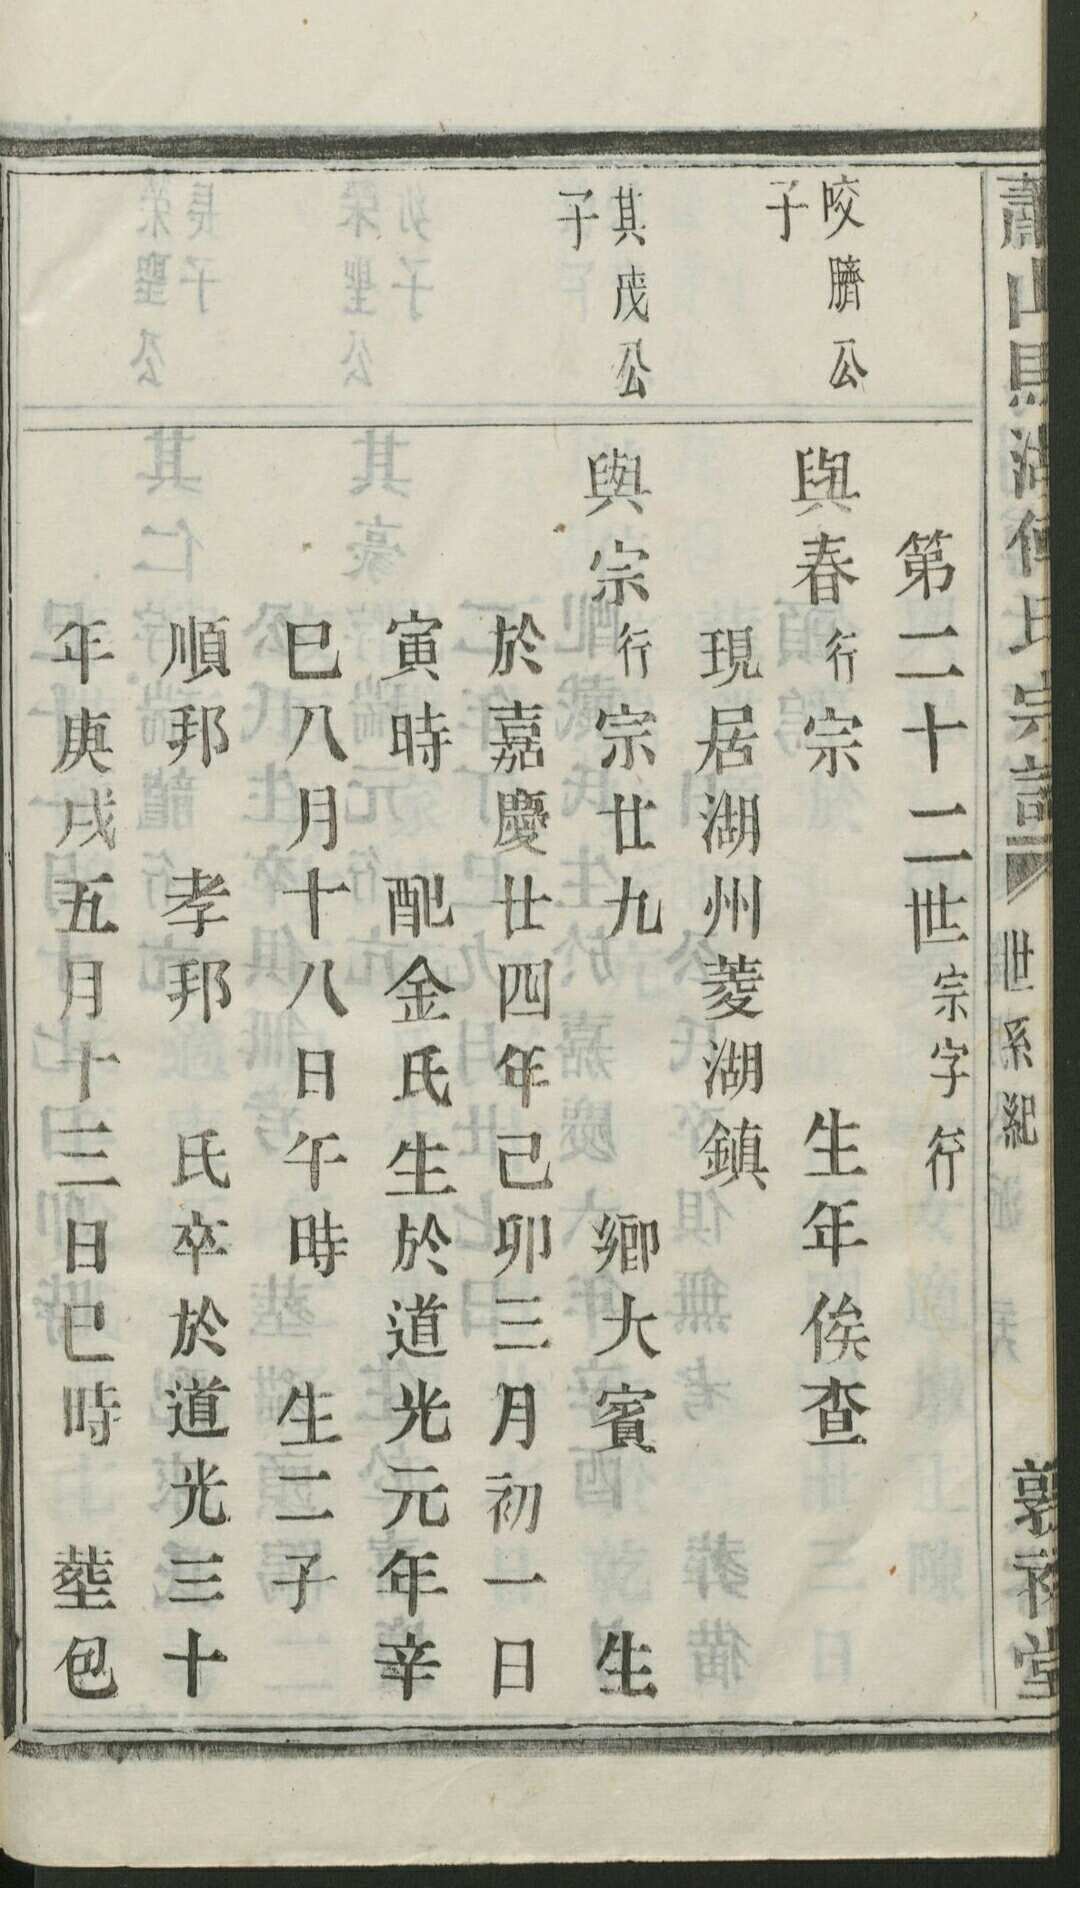 蕭山縣湖傅氏宗譜 世系紀 敦禮堂
第二十二世宗字行
咬臍公
子
與春行宗 生年俟查
現居湖州菱湖鎮
其茂公
子
與宗行宗廿九 鄉大賓 生
於嘉慶廿四年己卯三月初一日
寅時 配金氏生於道光元年辛
巳八月十八日午時 生二子
順邦 孝邦 氏卒於道光三十
年庚戌五月十三日巳時 塟包